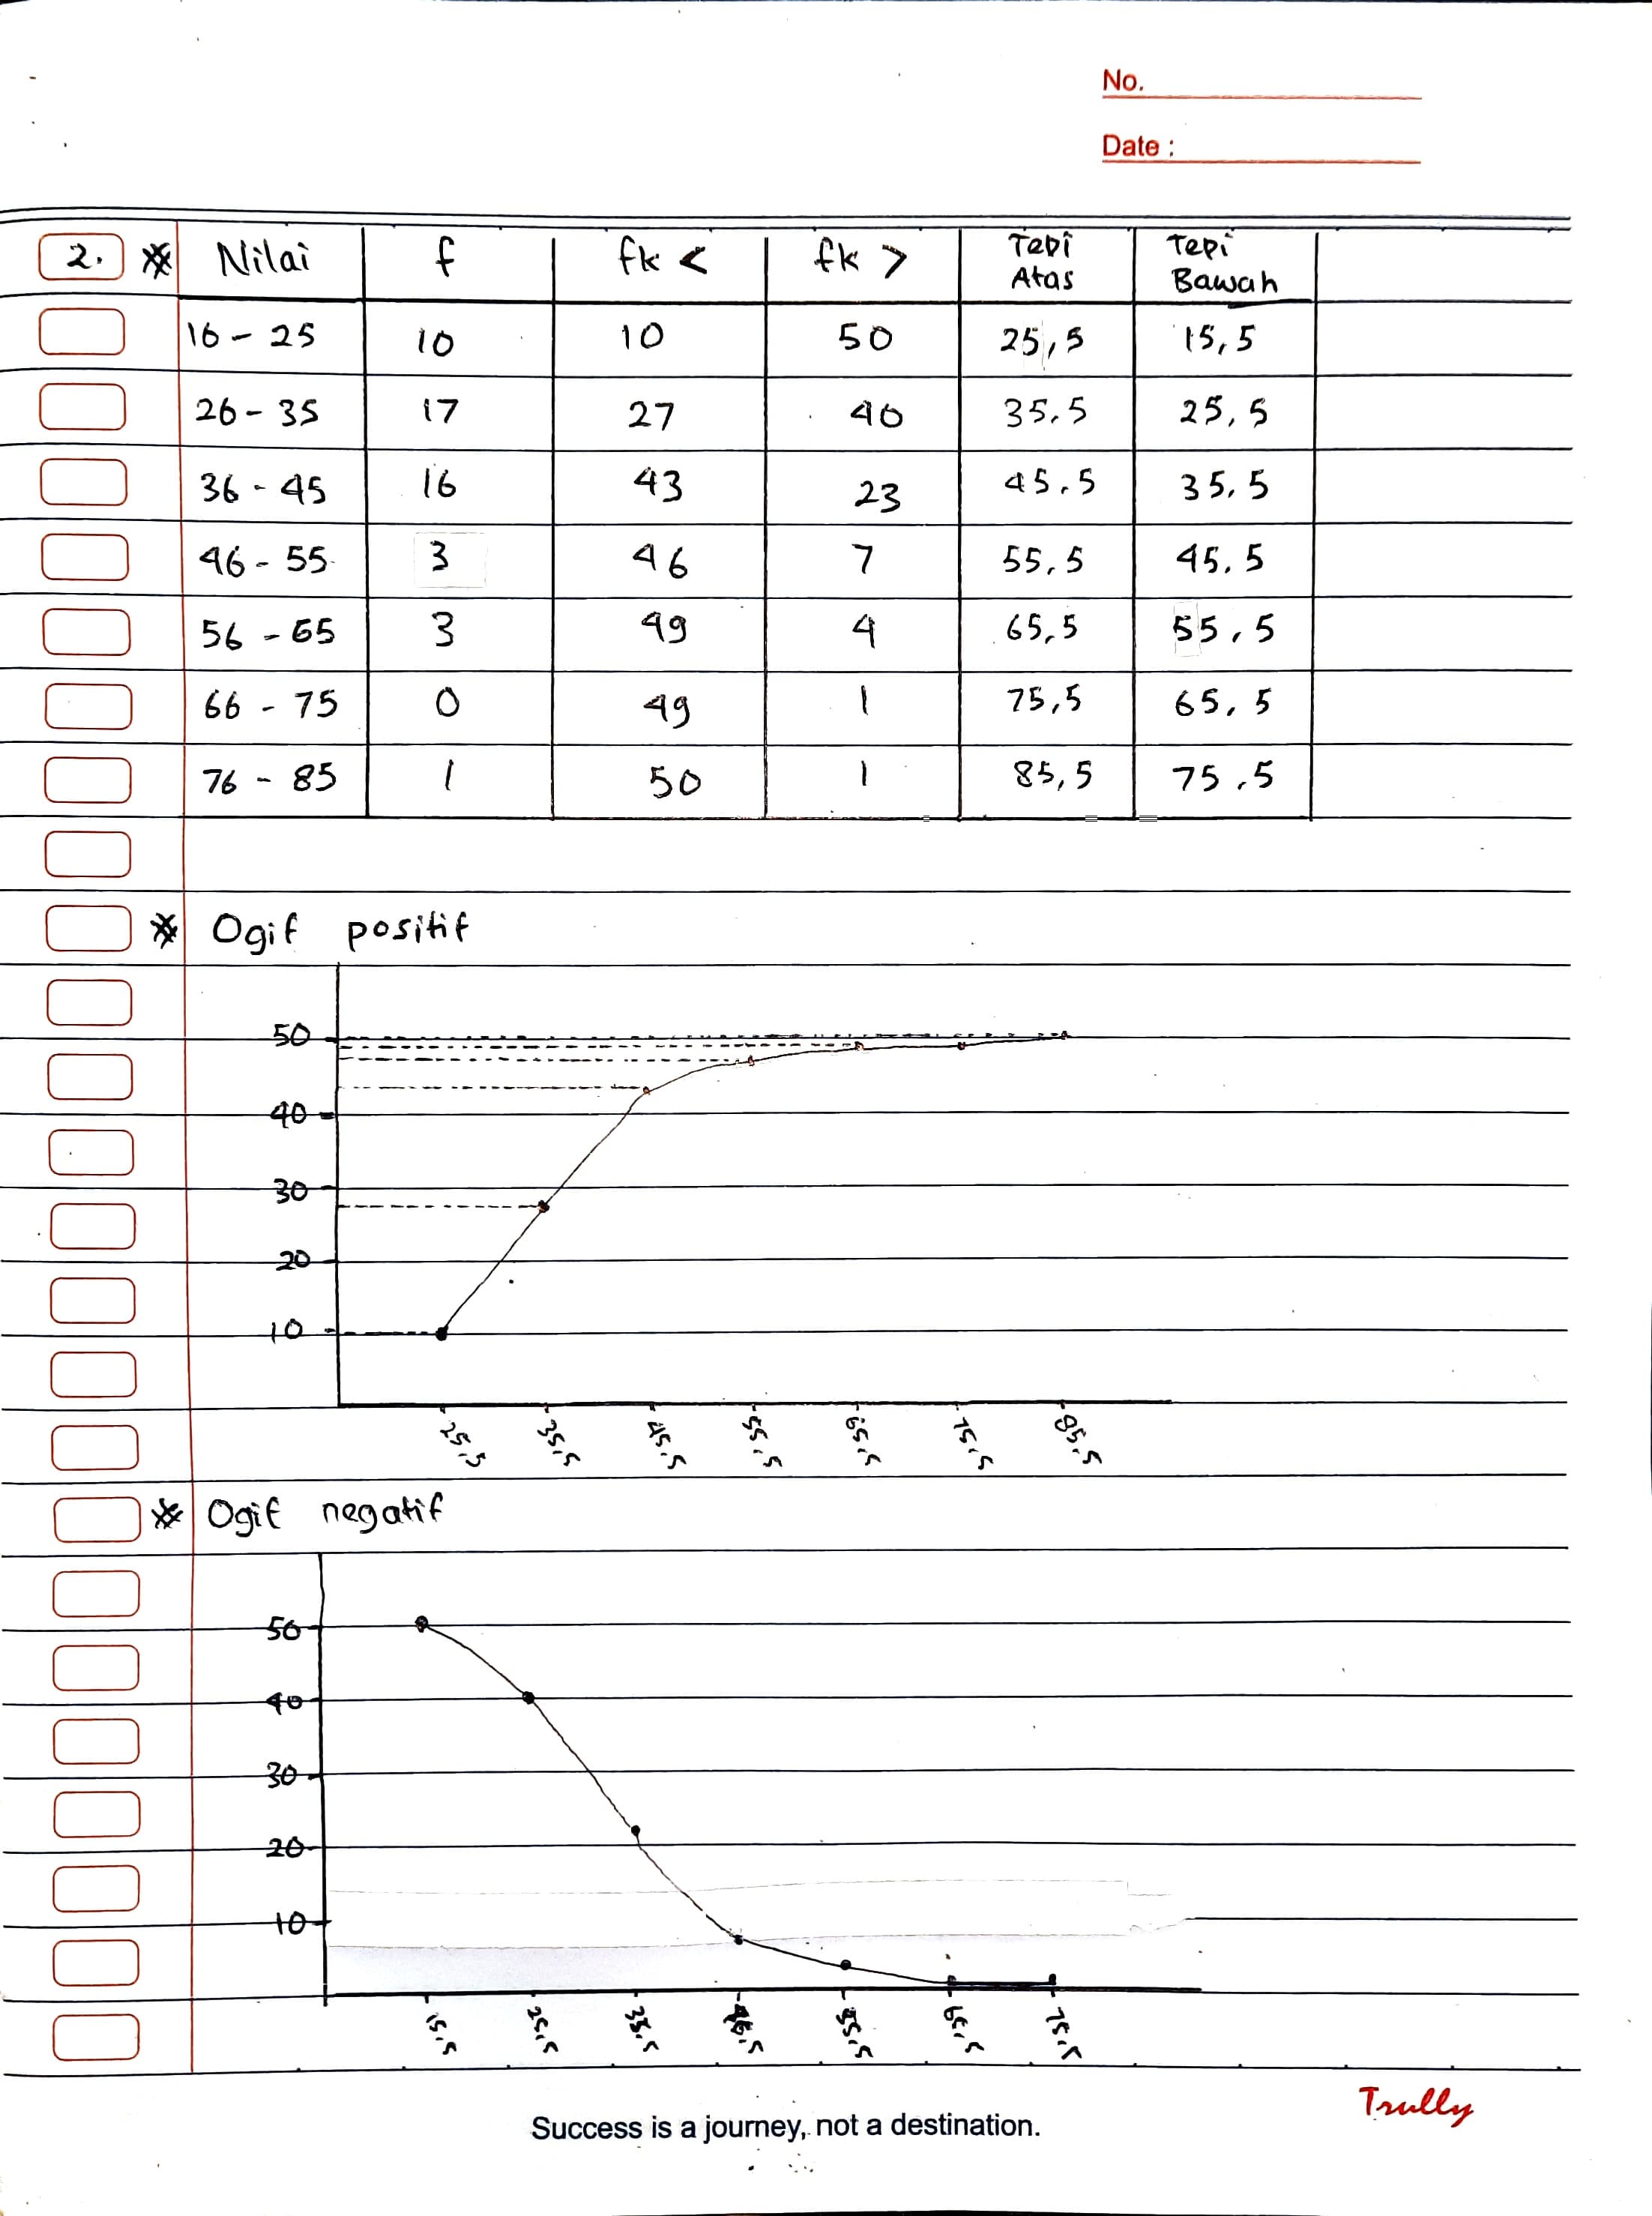 No.
Date :
2. * Nilai f fk < fk > Tepi Atas Tepi Bawah
16 - 25 10 10 50 25,5 15,5
26 - 35 17 27 40 35,5 25,5
36 - 45 16 43 23 45,5 35,5
46 - 55 3 46 7 55,5 45,5
56 - 65 3 49 4 65,5 55,5
66 - 75 0 49 1 75,5 65,5
76 - 85 1 50 1 85,5 75,5
* Ogif positif
50
40
30
20
10
25,5 35,5 45,5 55,5 65,5 75,5 85,5
* Ogif negatif
50
40
30
20
10
15,5 25,5 35,5 45,5 55,5 65,5 75,5
Success is a journey, not a destination.
Trully